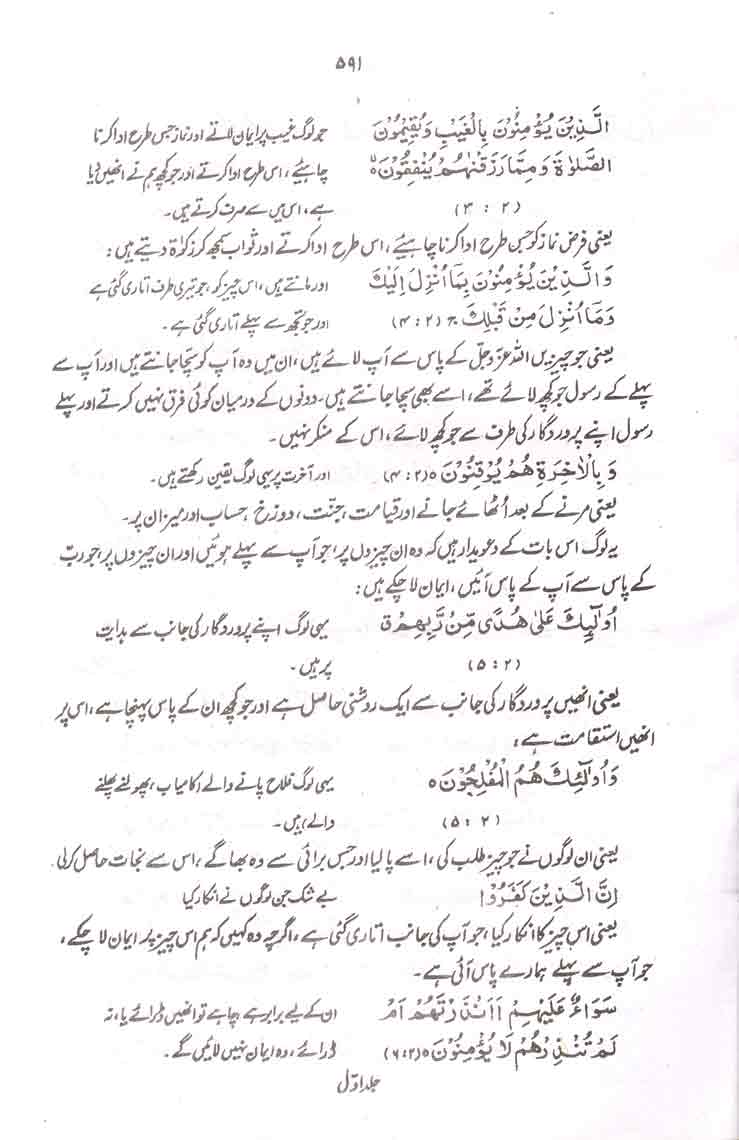 ۵۹۱
الَّذِيْنَ يُؤْمِنُوْنَ بِالْغَيْبِ وَيُقِيْمُوْنَ جو لوگ غیب پر ایمان لاتے اور نماز جس طرح ادا کرنا
الصَّلٰوةَ وَمِمَّا رَزَقْنٰهُمْ يُنْفِقُوْنَ ۵ چاہیئے، اس طرح ادا کرتے اور جو کچھ ہم نے انھیں دیا
(۲ : ۳) ہے، اس میں سے صرف کرتے ہیں۔
یعنی فرض نماز کو جس طرح ادا کرنا چاہیئے، اس طرح ادا کرتے اور ثواب سمجھ کر زکوٰۃ دیتے ہیں:
وَالَّذِيْنَ يُؤْمِنُوْنَ بِمَا اُنْزِلَ اِلَيْكَ اور مانتے ہیں، اس چیز کو، جو تیری طرف اتاری گئی ہے
وَمَا اُنْزِلَ مِنْ قَبْلِكَ ج (۲:۴) اور جو تجھ سے پہلے اتاری گئی ہے۔
یعنی جو چیزیں اللہ عزوجل کے پاس سے آپ لائے ہیں، ان میں وہ آپ کو سچا جانتے ہیں اور آپ سے
پہلے کے رسول جو کچھ لائے تھے، اسے بھی سچا جانتے ہیں۔ دونوں کے درمیان کوئی فرق نہیں کرتے اور پہلے
رسول اپنے پروردگار کی طرف سے جو کچھ لائے، اس کے منکر نہیں۔
وَبِالْاٰخِرَةِ هُمْ يُوْقِنُوْنَ ۵ (۲:۴) اور آخرت پر یہی لوگ یقین رکھتے ہیں۔
یعنی مرنے کے بعد اُٹھائے جانے اور قیامت، جنت، دوزخ، حساب اور میزان پر۔
یہ لوگ اس بات کے دعویدار ہیں کہ وہ ان چیزوں پر، جو آپ سے پہلے ہوئیں اور ان چیزوں پر، جو رب
کے پاس سے آپ کے پاس آئیں، ایمان لا چکے ہیں:
اُولٰٓئِكَ عَلٰى هُدًى مِّنْ رَّبِّهِمْ ق یہی لوگ اپنے پروردگار کی جانب سے ہدایت
(۲ : ۵) پر ہیں۔
یعنی انھیں پروردگار کی جانب سے ایک روشنی حاصل ہے اور جو کچھ ان کے پاس پہنچا ہے، اس پر
انھیں استقامت ہے:
وَاُولٰٓئِكَ هُمُ الْمُفْلِحُوْنَ ۵ یہی لوگ فلاح پانے والے (کامیاب، پھولنے پھلنے
(۲ : ۵) والے) ہیں۔
یعنی ان لوگوں نے جو چیز طلب کی، اسے پا لیا اور جس برائی سے وہ بھاگے، اس سے نجات حاصل کر لی۔
اِنَّ الَّذِيْنَ كَفَرُوْا بے شک جن لوگوں نے انکار کیا
یعنی اس چیز کا انکار کیا، جو آپ کی جانب اتاری گئی ہے، اگرچہ وہ کہیں کہ ہم اس چیز پر ایمان لا چکے،
جو آپ سے پہلے ہمارے پاس آئی ہے۔
سَوَآءٌ عَلَيْهِمْ ءَاَنْذَرْتَهُمْ اَمْ ان کے لیے برابر ہے، چاہے تو انھیں ڈرائے یا، نہ
لَمْ تُنْذِرْهُمْ لَا يُؤْمِنُوْنَ ۵ (۲:۶) ڈرائے، وہ ایمان نہیں لائیں گے۔
جلد اوّل